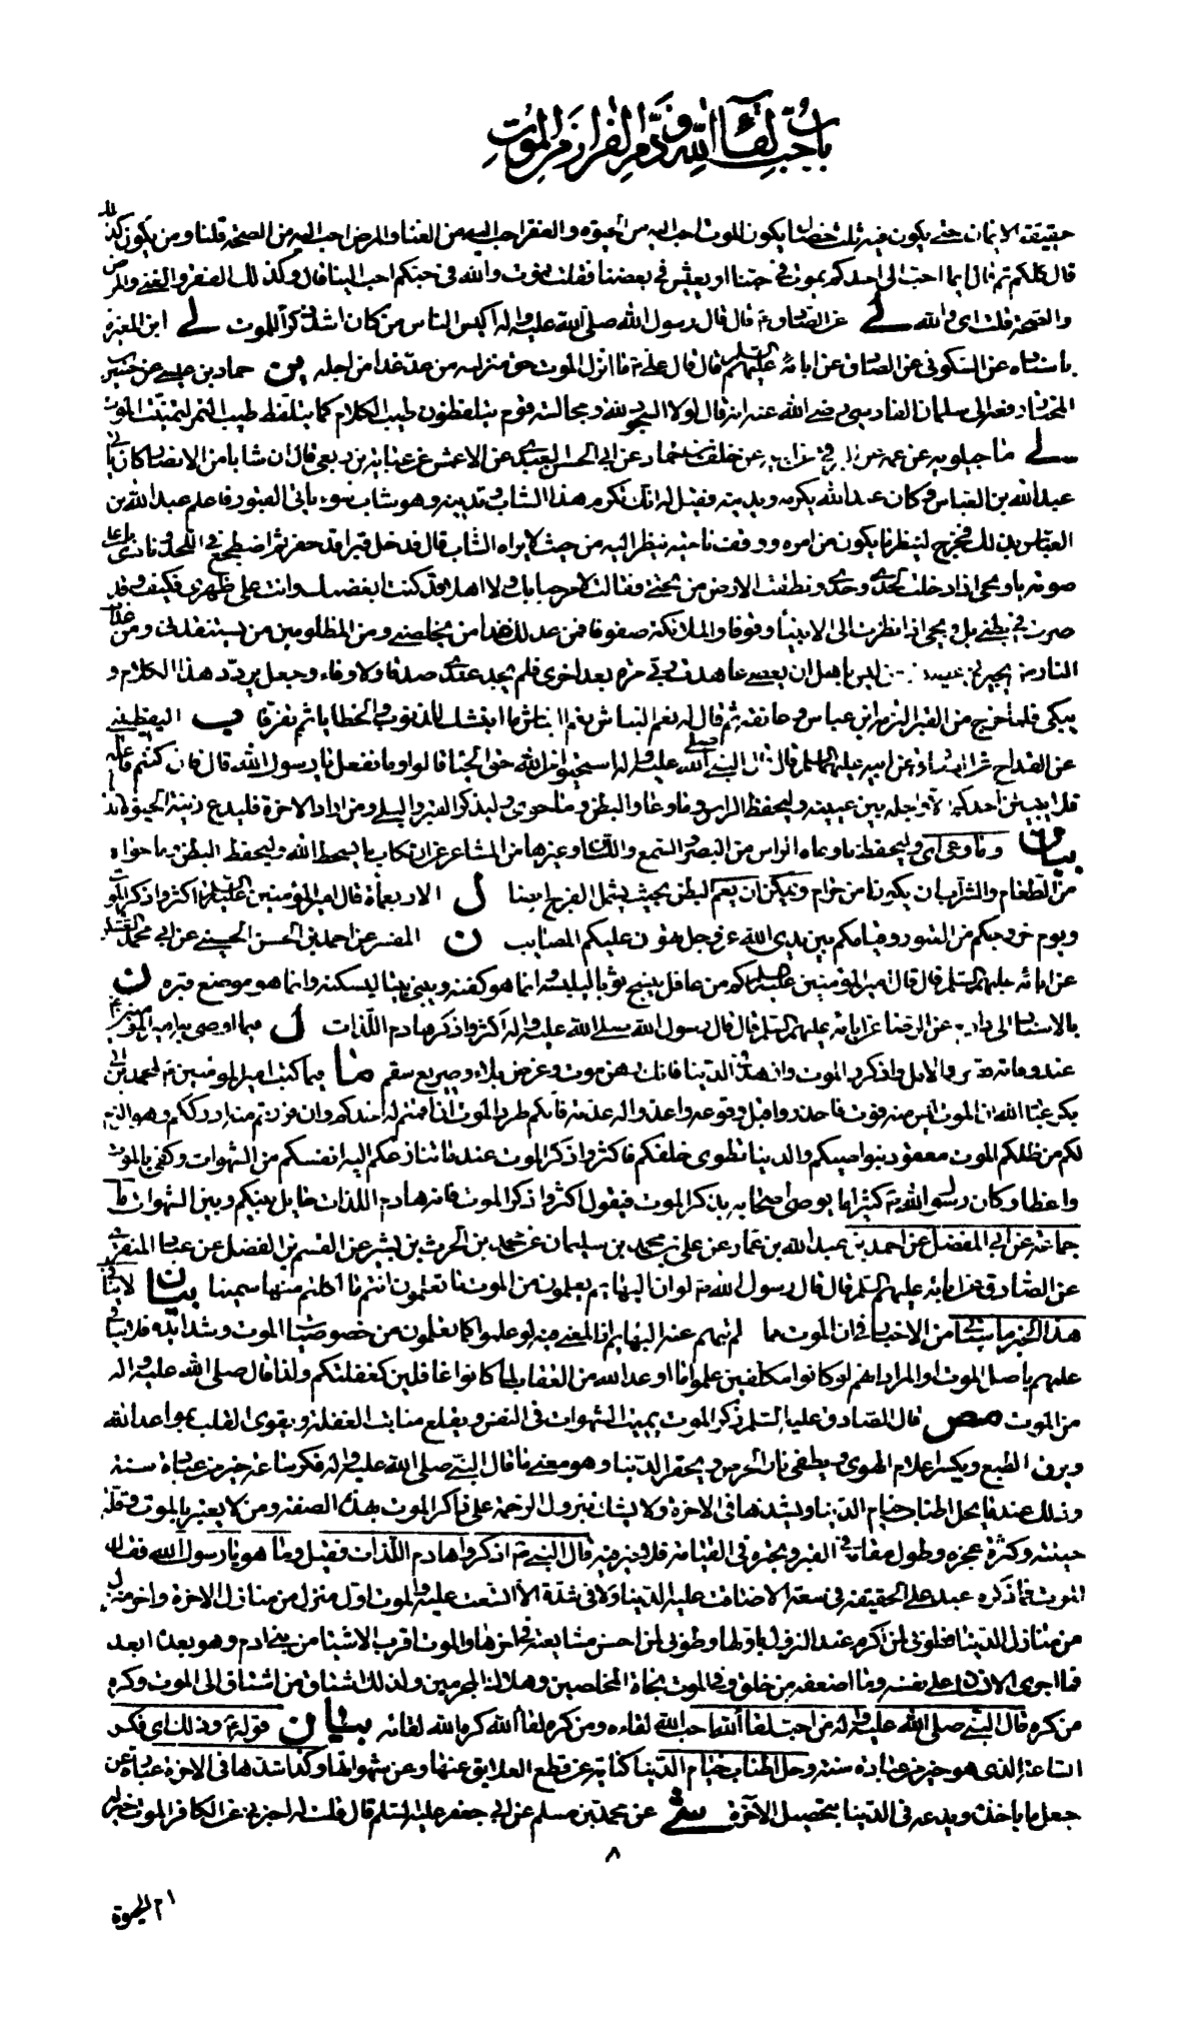 باب حب لقاء الله و ذم الفرار من الموت
حقيقة الايمان حتى يكون فيه ثلث خصال يكون الموت احب اليه من الحيوة والفقر احب اليه من الغنا والمرض احب اليه من الصحة قلنا ومن يكون كذلك
قال كلكم ثم قال ايما احب الى احدكم يموت في حبنا او يعيش في بغضنا فقلت نموت والله في حبكم احب الينا قال وكذلك الفقر والغنى والمرض
والصحة قلت اى والله لى عن الصادق ع قال قال رسول الله صلى الله عليه واله اكيس الناس من كان اشد ذكرا للموت لى ابن المغيرة
باسناده عن السكونى عن الصادق عن ابائه عليهم السلم قال قال على ع ما انزل الموت حق منزلته من عد غدا من اجله ين حماد بن عيسى عن حسين
المختار رفعه الى سلمان الفارسى رضى الله عنه انه قال لولا السجود لله ومجالسة قوم يتلفظون طيب الكلام كما يتلفظ طيب التمر لتمنيت الموت
لى ماجيلويه عن عمه عن البرقى عن ابيه عن خلف بن حماد عن ابى الحسن العبدى عن الاعمش عن عباية بن ربعى قال ان شابا من الانصار كان ياتى
عبدالله بن العباس وكان عبدالله يكرمه ويدنيه فقيل له انك تكرم هذا الشاب وتدنيه وهو شاب سوء ياتى القبور فاعلم عبدالله بن
العباس بذلك فخرج لينظر ما يكون من امره ووقف ناحية ينظر اليه من حيث لا يراه الشاب قال فدخل قبرا قد حفر ثم اضطجع في اللحد ونادى باعلى
صوته يا ويحى اذا دخلت لحدى وحدى ونطقت الارض من تحتى فقالت لا مرحبا بك ولا اهلا قد كنت ابغضك وانت على ظهرى فكيف وقد
صرت في بطنى بل ويحى اذا نظرت الى الانبياء وقوفا والملائكة صفوفا فمن عدلك غدا من يخلصنى ومن المظلومين من يستنقذنى ومن عذاب
النار من يجيرنى عصيت من ليس باهل ان يعصى عاهدت ربى مرة بعد اخرى فلم يجد عندى صدقا ولا وفاء وجعل يردد هذا الكلام و
يبكى فلما خرج من القبر التزمه ابن عباس وعانقه ثم قال له نعم النباش نعم النباش ما انبشك للذنوب والخطايا ثم تفرقا ب اليقطينى
عن القداح عن الصادق عن ابيه عليهما السلم قال قال النبى صلى الله عليه واله استحيوا من الله حق الحيا قالوا وما نفعل يا رسول الله قال فان كنتم فاعلين
فلا يبيتن احدكم الا واجله بين عينيه وليحفظ الراس وما وعا والبطن وما حوى وليذكر القبر والبلى ومن اراد الاخرة فليدع زينة الحيوة الدنيا
بيان وما وعى اى وليحفظ ما وعاه الراس من البصر والسمع واللسان وغيرها من المشاعر عن ارتكاب ما يسخط الله وليحفظ البطن وما حواه
من الطعام والشراب ان يكونا من حرام ويمكن ان يعم البطن بحيث يشمل الفرج ايضا ل الاربعمأة قال امير المؤمنين عليه السلم اكثروا ذكر الموت
ويوم خروجكم من القبور وقيامكم بين يدى الله عز وجل تهون عليكم المصايب ن المفسر عن احمد بن الحسن الحسينى عن ابى محمد العسكرى
عن ابائه عليهم السلم قال قال امير المؤمنين عليه السلم كم من غافل ينسج ثوبا ليلبسه وانما هو كفنه ويبنى بيتا ليسكنه وانما هو موضع قبره ن
بالاسناد الى دارم عن الرضا عن ابائه عليهم السلم قال قال رسول الله صلى الله عليه واله اكثروا ذكر هادم اللذات ل فيما اوصى به امير المؤمنين ع
عند وفاته قصر الامل واذكر الموت وازهد في الدنيا فانك رهن موت وغرض بلاء وصريع سقم ما فيما كتب امير المؤمنين ع لمحمد بن ابى
بكر عباد الله ان الموت ليس منه فوت فاحذروا قبل وقوعه واعدوا له عدته فانكم طرد الموت ان اقمتم له اخذكم وان فررتم منه ادرككم وهو الزم
لكم من ظلكم الموت معقود بنواصيكم والدنيا تطوى خلفكم فاكثروا ذكر الموت عند ما تنازعكم اليه انفسكم من الشهوات وكفى بالموت
واعظا وكان رسول الله ص كثيرا ما يوصى اصحابه بذكر الموت فيقول اكثروا ذكر الموت فانه هادم اللذات حايل بينكم وبين الشهوات ما
جماعة عن ابى المفضل عن احمد بن عبيد الله بن عمار عن على بن محمد بن سليمان عن محمد بن الحرث بن بشير عن القسم بن الفضل عن عباد المنقرى
عن الصادق عن ابائه عليهم السلم قال قال رسول الله ص لو ان البهايم يعلمون من الموت ما تعلمون انتم ما اكلتم منها سمينا بيان لا ينافى
هذا الخبر ما سياتى من الاخبار في ان الموت مما لم تبهم عنه البهايم اذ المعنى منه لو علموا كما تعلمون من خصوصيات الموت وشدايده فلا ينافى
علمهم باصل الموت او المراد انهم لو كانوا مكلفين وعلموا ما اوعد الله من العقاب لما كانوا غافلين كغفلتكم ولذا قال صلى الله عليه واله
من الموت مص قال الصادق عليه السلم ذكر الموت يميت الشهوات في النفس ويقلع منابت الغفلة ويقوى القلب بمواعد الله
ويرق الطبع ويكسر اعلام الهوى ويطفى نار الحرص ويحقر الدنيا وهو معنى ما قال النبى صلى الله عليه واله فكر ساعة خير من عبادة سنة
وذلك عند ما يحل اطناب خيام الدنيا ويشدها في الاخرة ولا يشك بنزول الرحمة على ذاكر الموت بهذه الصفة ومن لا يعتبر بالموت وقلة
حيلته وكثرة عجزه وطول مقامه في القبر وتحيره في القيامة فلا خير فيه قال النبى ص اذكروا هادم اللذات فقيل وما هو يا رسول الله فقال
الموت فما ذكره عبد على الحقيقة في سعة الا ضاقت عليه الدنيا ولا في شدة الا اتسعت عليه والموت اول منزل من منازل الاخرة واخر منزل
من منازل الدنيا فطوبى لمن اكرم عند النزول باولها وطوبى لمن احسن مشايعته في اخرها والموت اقرب الاشيا من بنى ادم وهو يعده ابعد
فما اجرى الانسان على نفسه وما اضعفه من خلق وفي الموت نجاة المخلصين وهلاك المجرمين ولذلك اشتاق من اشتاق الى الموت وكره
من كره قال النبى صلى الله عليه واله من احب لقا الله احب الله لقاءه ومن كره لقا الله كره الله لقائه بيان قوله ع وذلك اى فكر
الساعة الذى هو خير من عبادة سنة وحل اطناب خيام الدنيا كناية عن قطع العلايق عنها وعن شهواتها وكذا شدها في الاخرة عبارة عن
جعل ما ياخذ ويدعه في الدنيا لتحصيل الاخرة شى عن محمد بن مسلم عن ابى جعفر عليه السلم قال قلت له اخبرنى عن الكافر الموت خير له
٨
ام الحيوة